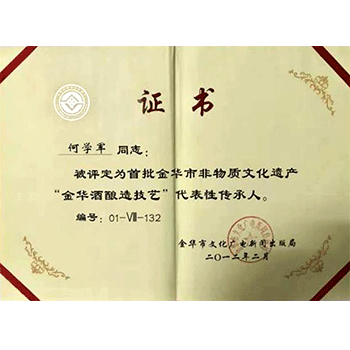 证书
何学军 同志：
被评定为首批金华市非物质文化遗产
“金华酒酿造技艺”代表性传承人。
编号：01-Ⅷ-132
金华市文化广电新闻出版局
二〇一二年二月